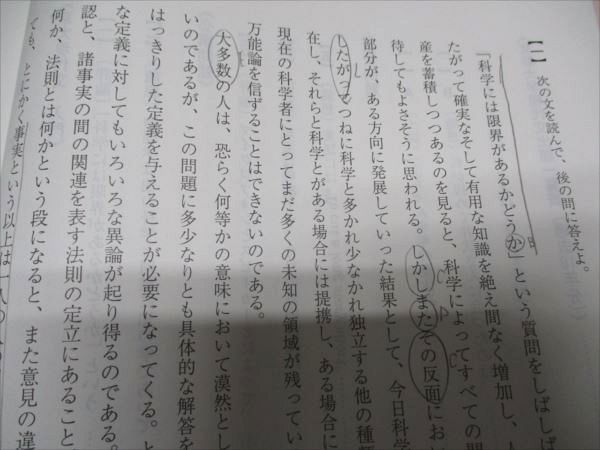 【一】 次の文を読んで、後の問に答えよ。
「科学には限界があるかどうか」という質問をしばしば
たがって確実なそして有用な知識を絶え間なく増加し、人
産を蓄積しつつあるのを見ると、科学によってすべての問
待してもよさそうに思われる。しかしまたその反面にお
部分が、ある方向に発展していった結果として、今日科学
したがってつねに科学と多かれ少なかれ独立する他の種
在し、それらと科学とがある場合には提携し、ある場合に
現在の科学者にとってまだ多くの未知の領域が残ってい
万能論を信ずることはできないのである。
大多数の人は、恐らく何等かの意味において漠然とし
いのであるが、この問題に多少なりとも具体的な解答を
はっきりした定義を与えることが必要になってくる。と
な定義に対してもいろいろな異論が起り得るのである。
認と、諸事実の間の関連を表す法則の定立にあること
何か、法則とは何かという段になると、また意見の違
ても、とにかく事実という以上は一人の人の